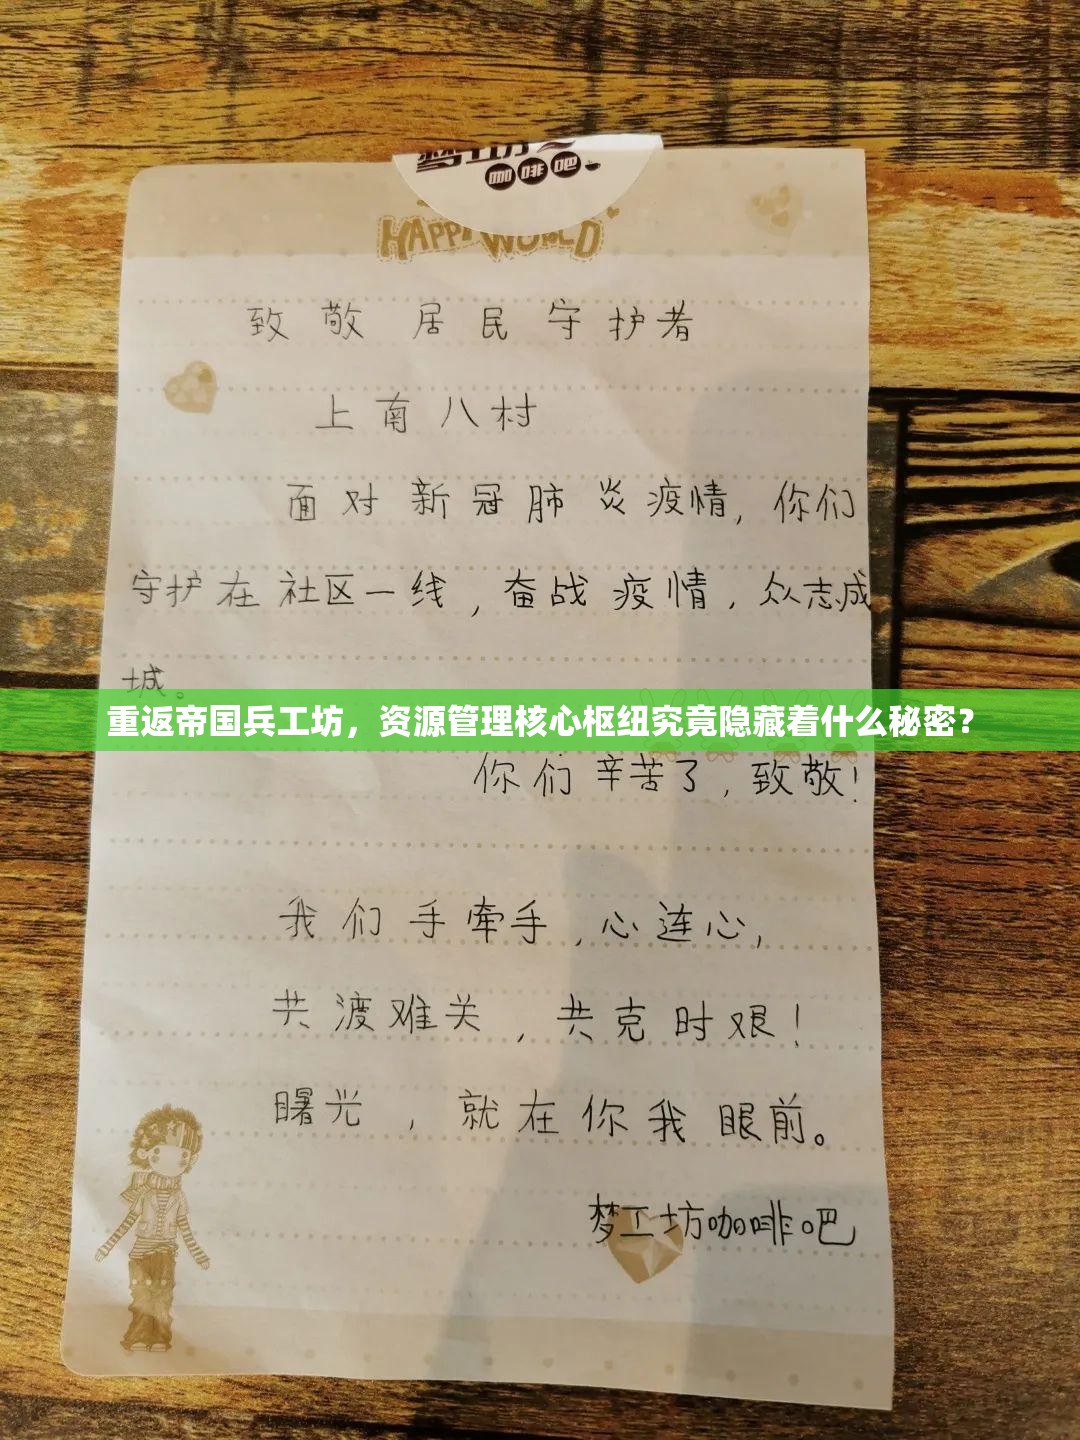 咖啡吧
HAPPY WORLD
致敬居民守护者
上南八村
面对新冠肺炎疫情,你们
守护在社区一线,奋战疫情,众志成
城。
重返帝国兵工坊，资源管理核心枢纽究竟隐藏着什么秘密？
你们辛苦了,致敬!
我们手牵手,心连心,
共渡难关,共克时艰!
曙光,就在你我眼前。
梦工坊咖啡吧